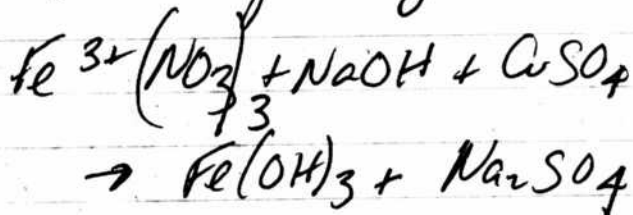 Fe³⁺(NO₃)₃ + NaOH + CuSO₄
→ Fe(OH)₃ + Na₂SO₄